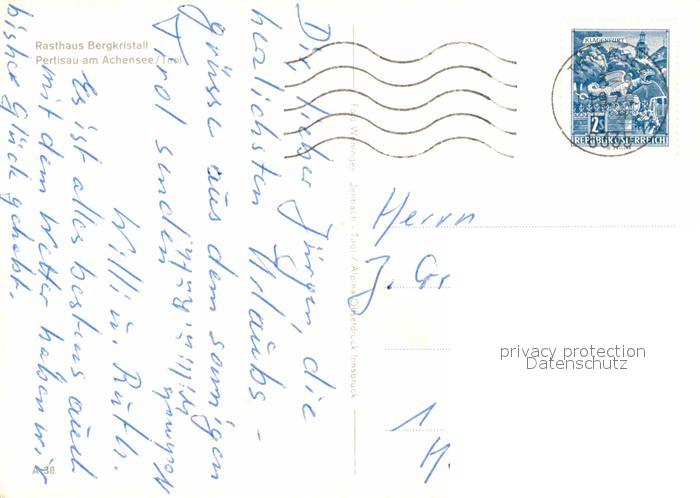 Rasthaus Bergkristall
Pertisau am Achensee/Tirol
Dir lieber Jürgen, die
herzlichsten Urlaubs-
grüsse aus dem sonnigen
Tirol senden
Willi u. Ruth.
Es ist alles bestens auch
mit dem Wetter haben wir
bisher Glück gehabt.
A 38
Jenbach, Tirol / Alpina Offsetdruck Innsbruck
KLAGENFURT
2S
REPUBLIK ÖSTERREICH
Herrn
J. Gr
1
privacy protection
Datenschutz